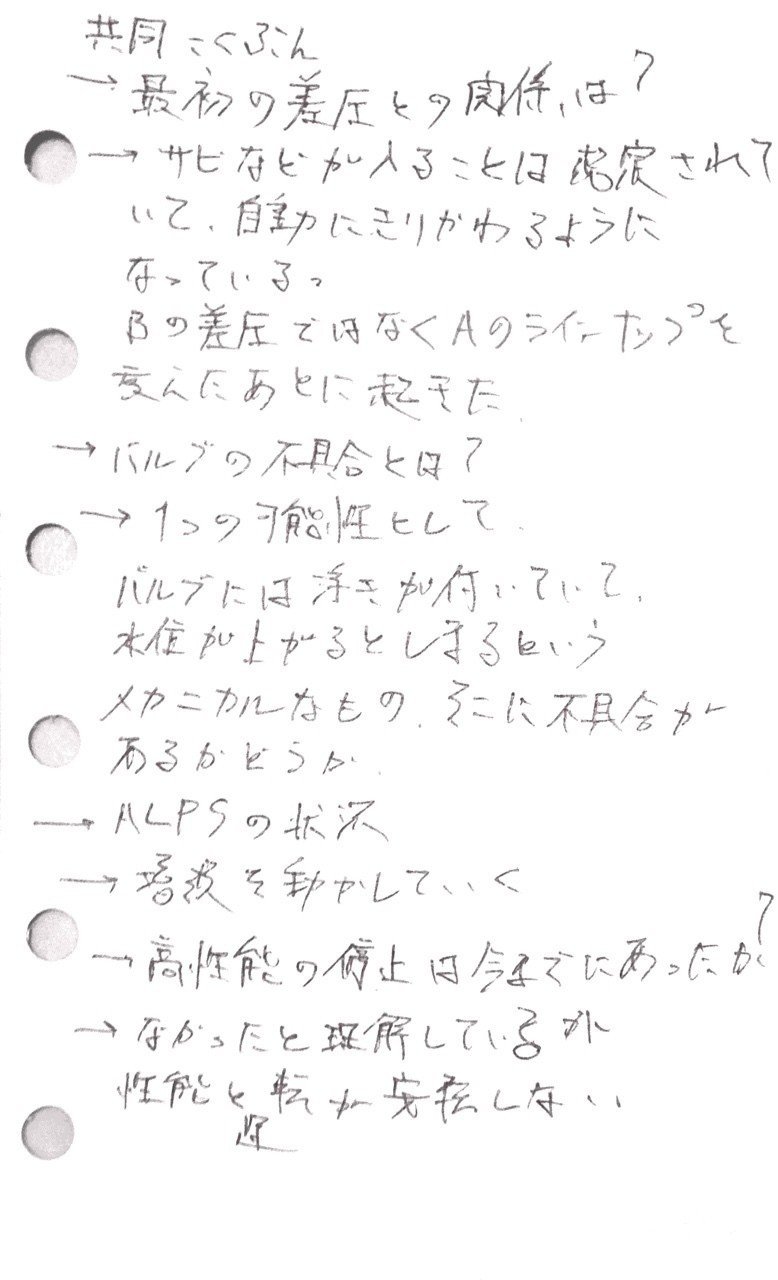 共同 こくぶん
→ 最初の差圧との関係は?
→ サビなどが入ることは想定されて
いて、自動にきりかわるように
なっている。
Bの差圧ではなくAのラインナップを
変えたあとに起きた
→ バルブの不具合とは?
→ 1つの可能性として、
バルブには浮きが付いていて、
水位が上がるとしまるという
メカニカルなもの、そこに不具合が
あるかどうか
→ ALPSの状況
→ 増設を動かしていく
→ 高性能の停止は今までにあったか?
→ なかったと理解しているが
性能と転が安転しない
運